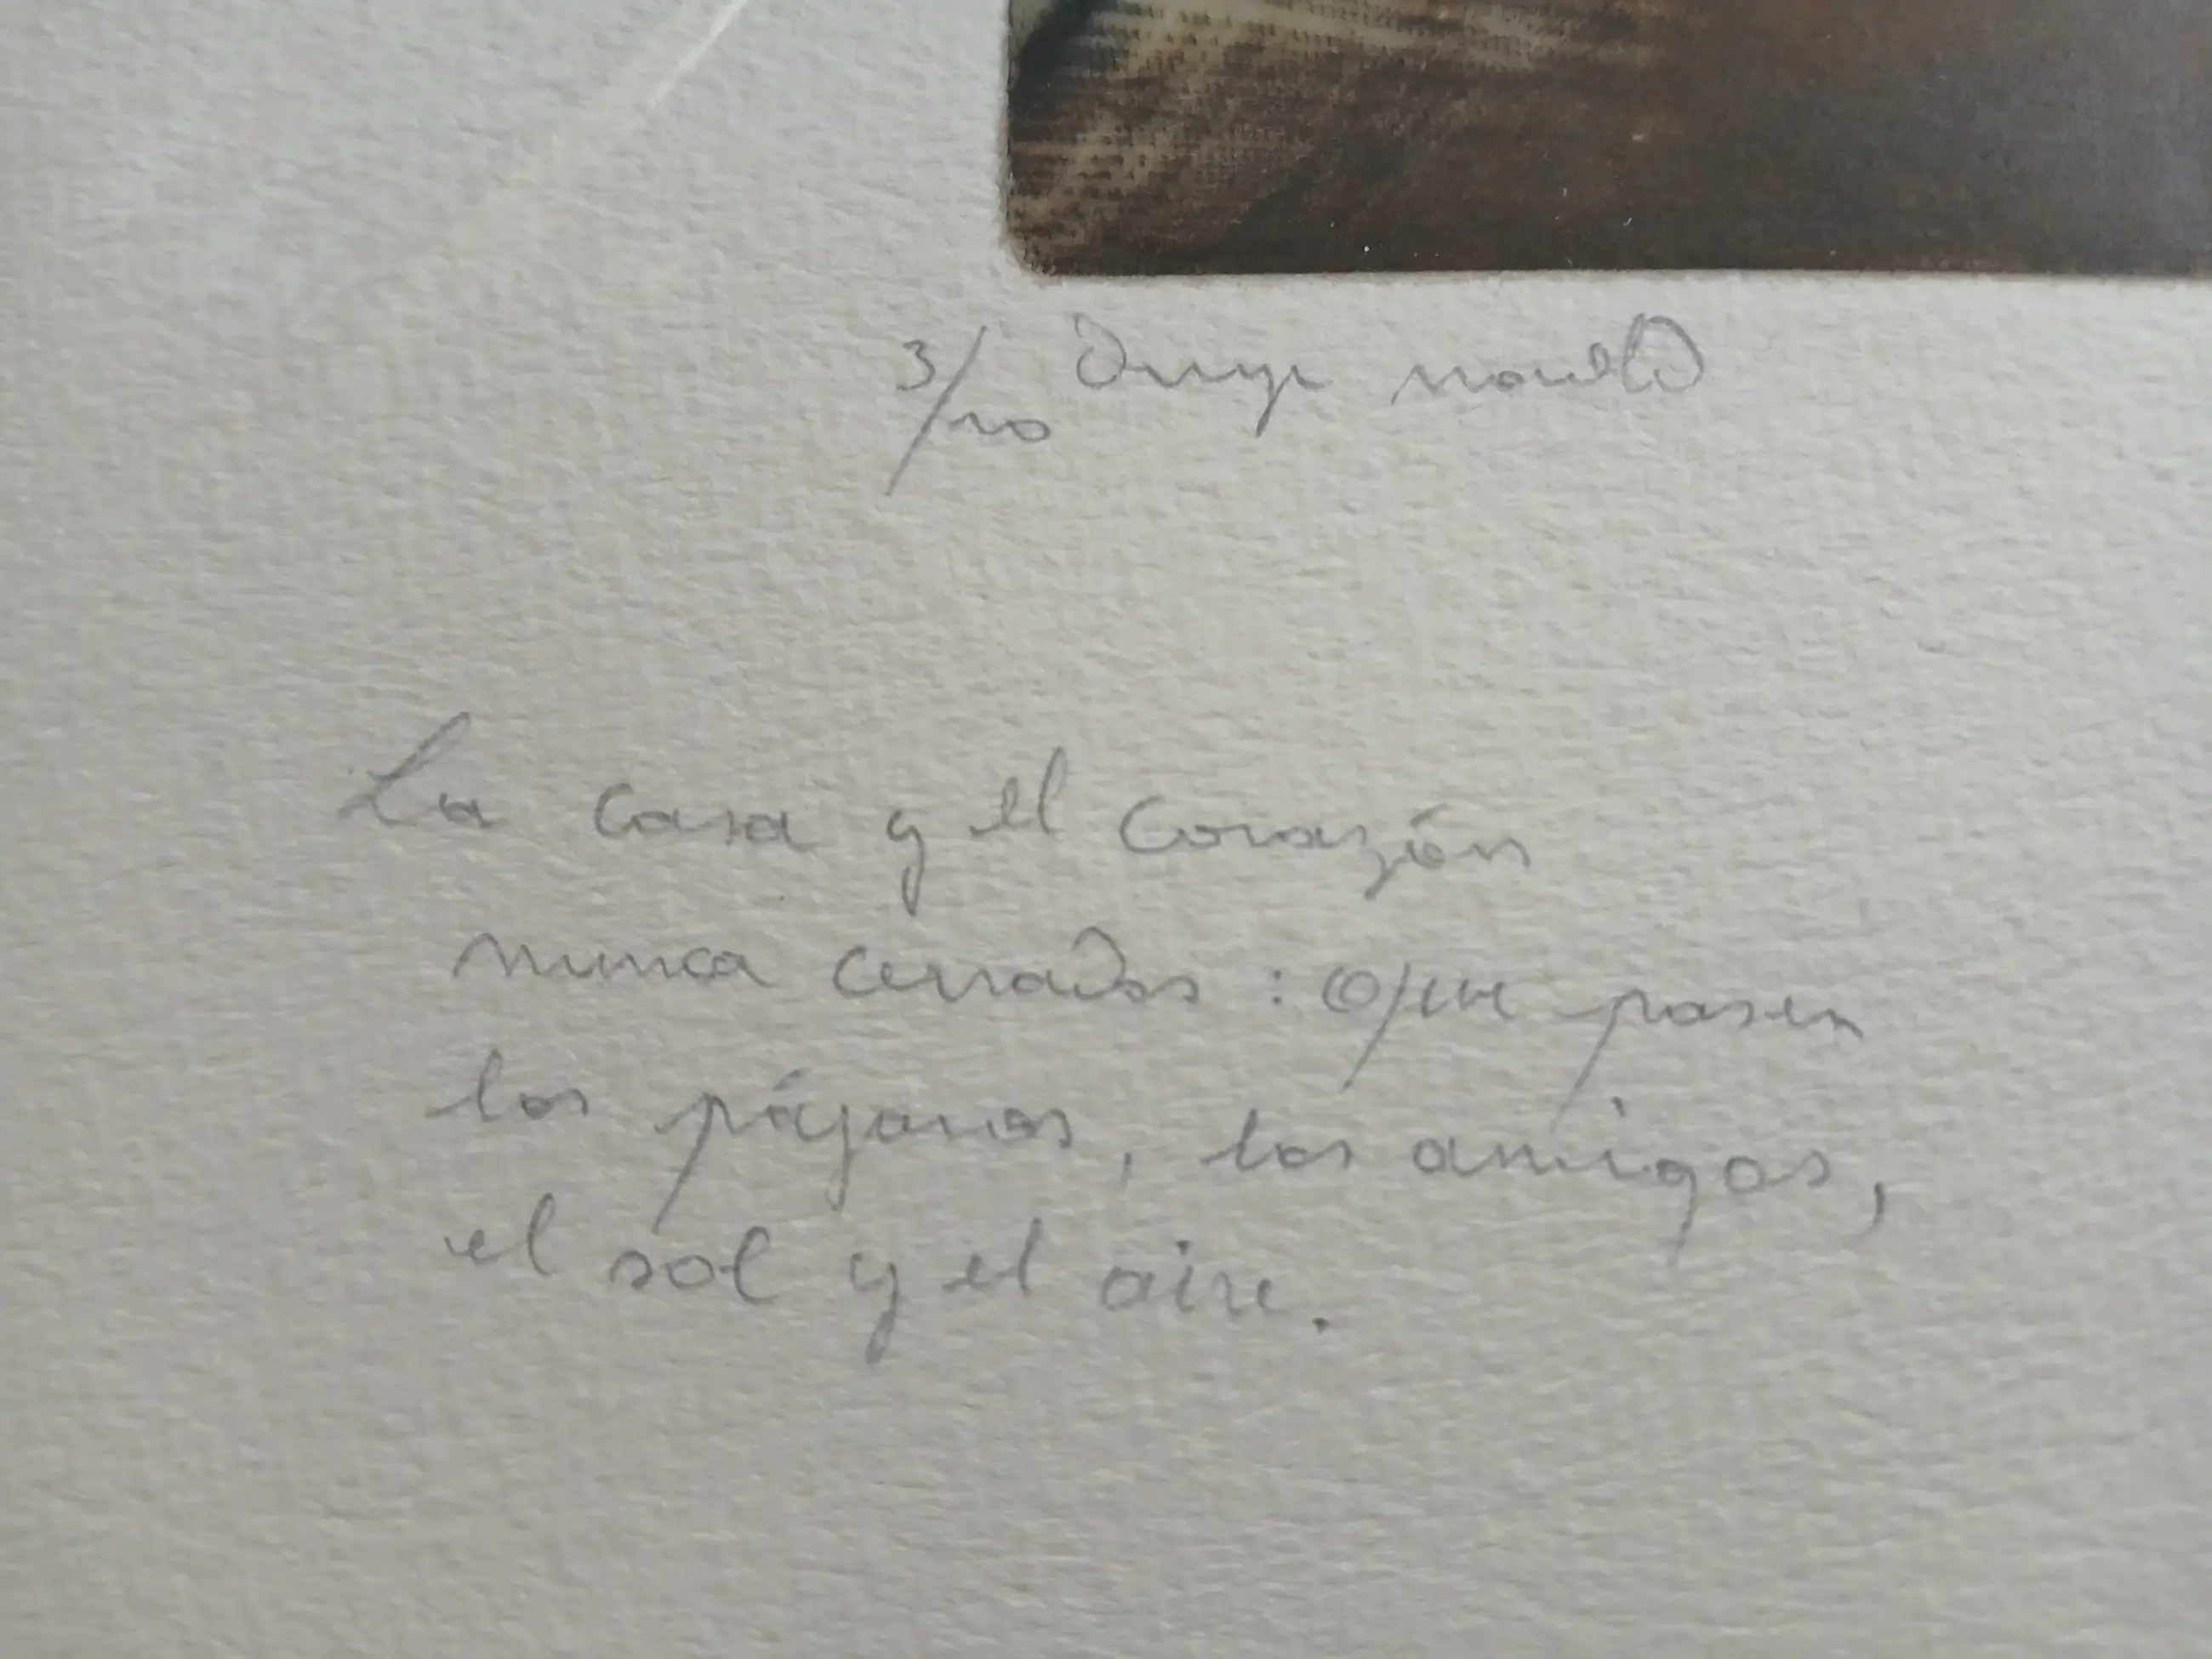 3/10
La casa y el corazón
nunca cerrados: Que pasen
los pájaros, los amigos,
el sol y el aire.